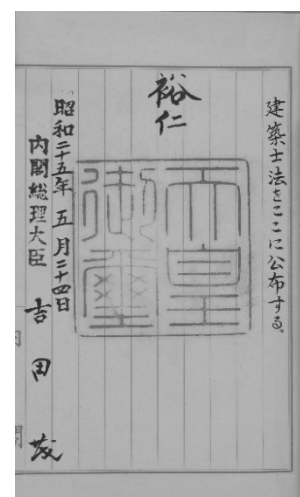 建築士法をここに公布する。
裕仁
天皇
御璽
昭和二十五年五月二十四日
内閣総理大臣 吉田茂